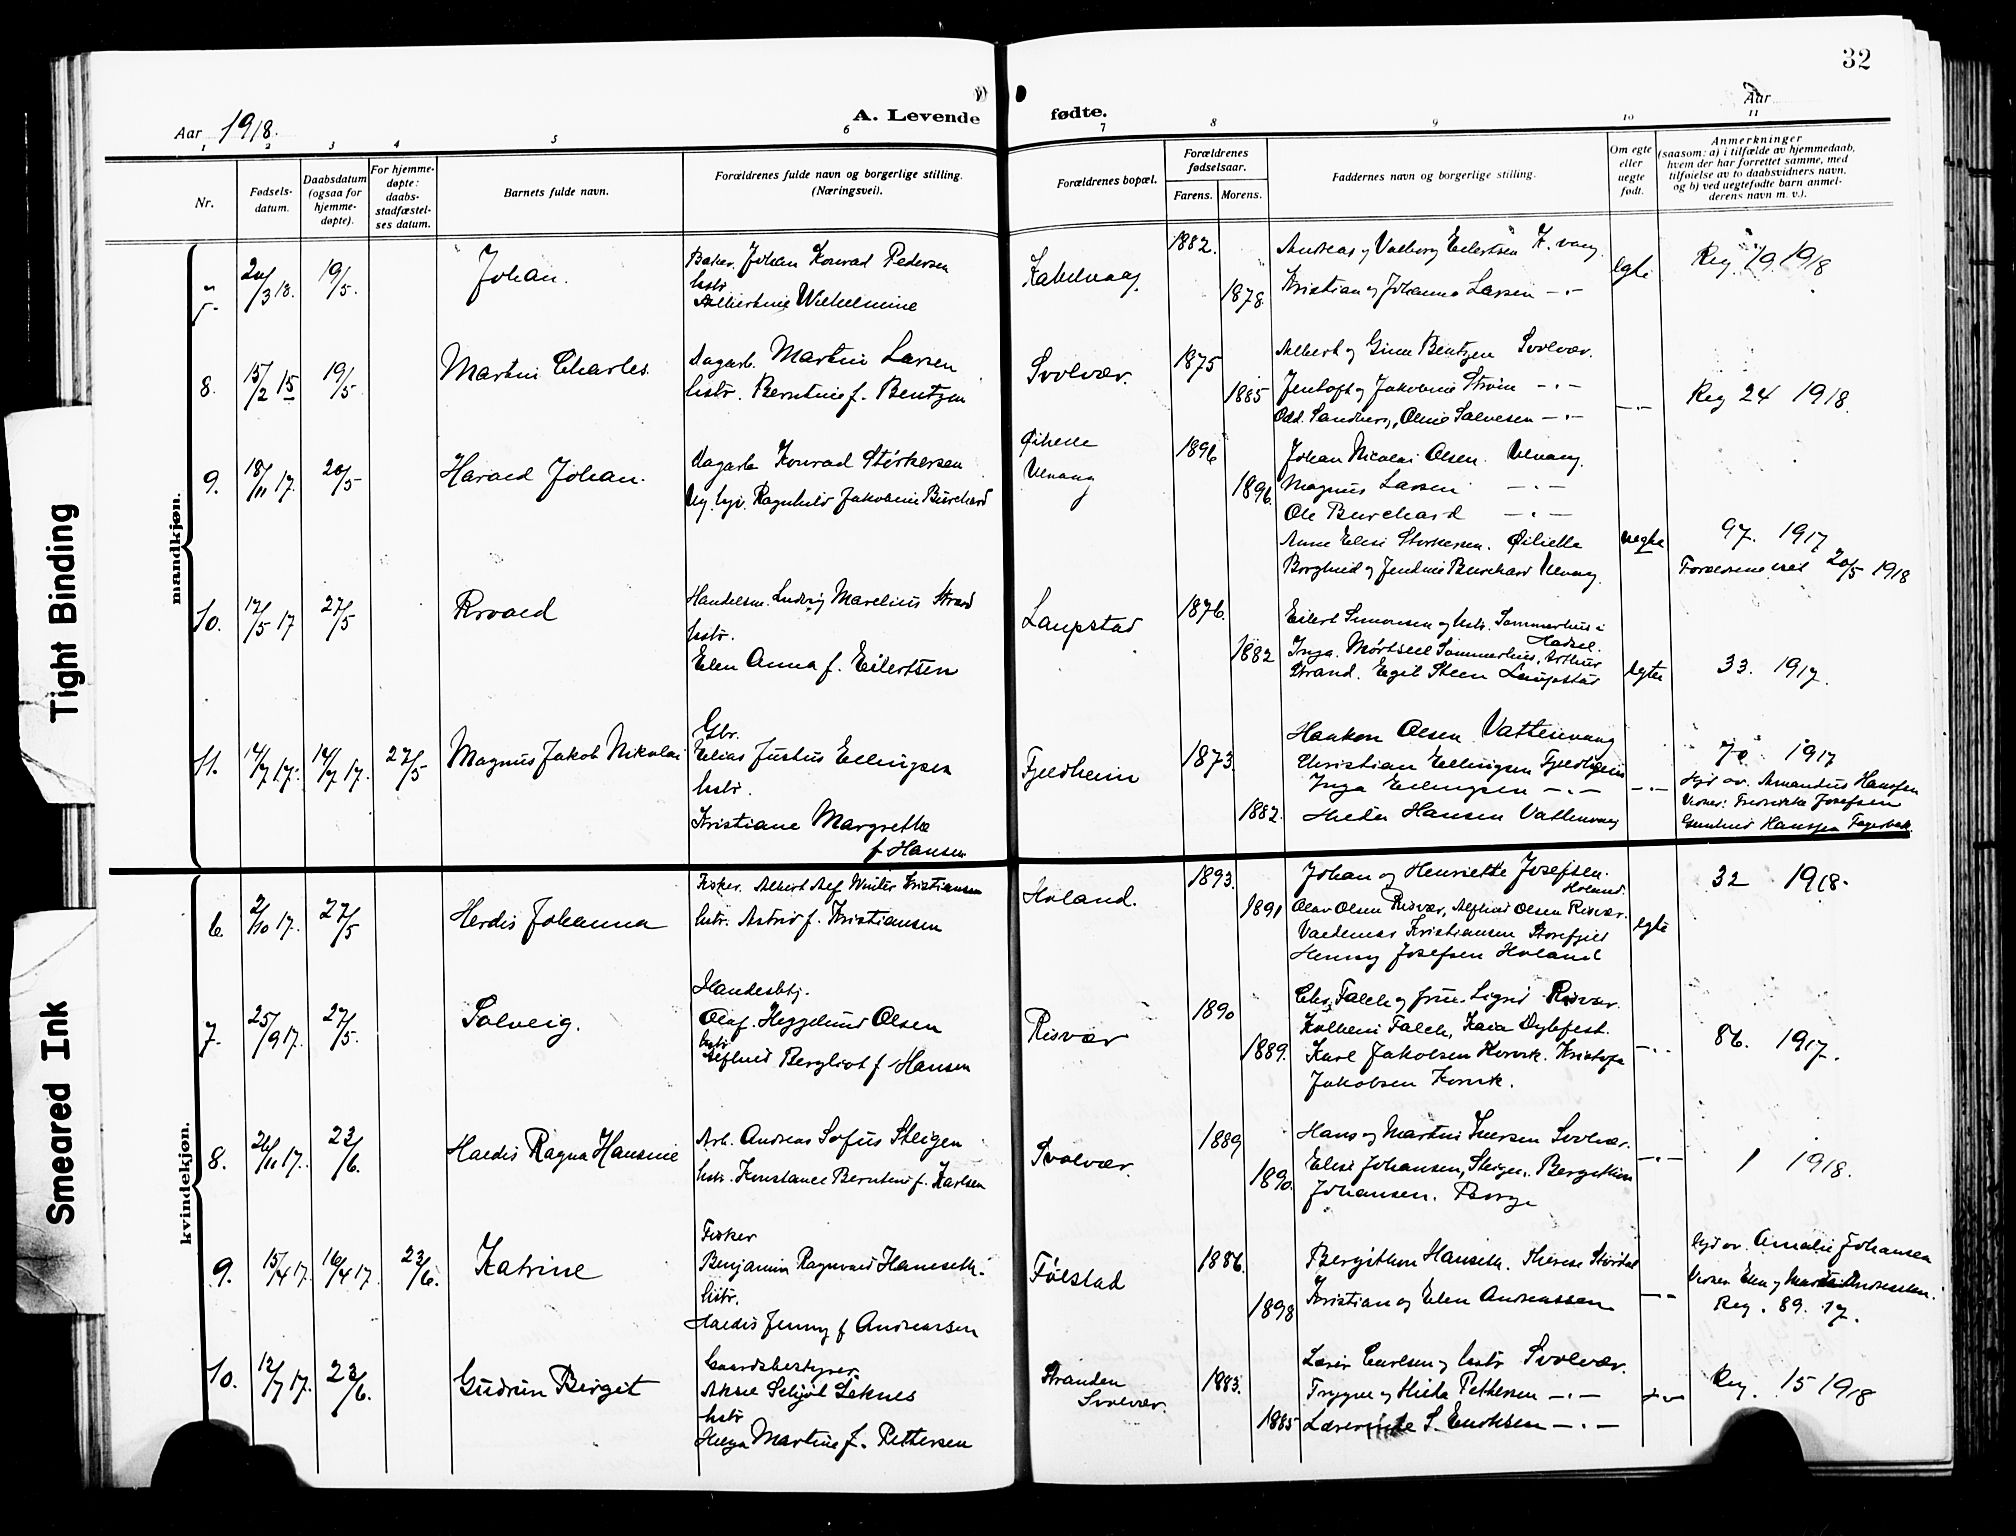 32
Aar 1918.
A. Levende fødte.
Aar
1 2 3 4 5 6 7 8 9 10 11
Nr.
Fødsels-
datum.
Daabsdatum
(ogsaa for
hjemme-
døpte).
For hjemme-
døpte:
daabs-
stadfæstel-
ses datum.
Barnets fulde navn.
Forældrenes fulde navn og borgerlige stilling.
(Næringsvei).
Forældrenes bopæl.
Forældrenes
fødselsaar.
Farens. Morens.
Faddernes navn og borgerlige stilling.
Om egte
eller
uegte
født.
Anmerkninger
(saasom: a) i tilfælde av hjemmedaab,
hvem der har forrettet samme, med
tilføielse av to daabsvidners navn,
og b) ved uegtefødte barn anmel-
derens navn m. v.).
mandkjøn.
19/5. Johan.
Baker. Johan Konrad Pedersen
hstr
Albertine Wilhelmine
Kabelvaag.
1882.
1878.
Andreas og Valborg Eilertsen K.vaag
Kristian og Johanna Larsen -"-
egte
Reg. 19. 1918
8. 15/2 15 19/5 Martin Charles.
Dagarb. Martin Larsen
hstr. Berntine f. Bentzen
Svolvær.
1875
1885
Albert og Gina Bentzen Svolvær.
Jentoft og Jakobine Strøm -"-
Odd. Sandberg, Oline Salvesen -"-
-"-
Reg 24 1918.
9. 18/11 17. 20/5 Harald Johan.
Dagarb Konrad Størkersen
Ug. Ragnhild Jakobine Burchard
Ulvaag
1896
1896.
Johan Nicolai Olsen. Ulvaag.
Magnus Larsen -"-
Ole Burchard -"-
Anne Elise Størkersen.
Borghild og Jentine Burchard Ulvaag.
uegte
97. 1917
Forældrene viet 20/5 1918
10. 17/5 17 27/5 Roald
Handelsm. Ludvig Marelius Strand
hstr.
Elen Anna f. Eilertsen
Laupstad
1876.
1882
Eilert Simonsen og hstr. Sommerhus i
Hadsel.
Inga Mørtsell Sommerhus, Arthur
Strand. Egil Steen Laupstad
egte
33. 1917.
11. 14/7 17. 14/7 17. 27/5 Magnus Jakob Nikolai
Gbr.
Elias Justus Ellingsen
hstr.
Kristiane Margrethe
f Hansen
Fjeldheim
1873.
1882.
Haakon Olsen Vattervaag
Christian Ellingsen Fjeldheim
Inga Ellingsen -"-
Hansen Vattervaag
-"-
70 1917
Hjd av. Amandus Hanssen
Vidner: Fredrikke Josefsen
Gunhild Hanssen
kvindekjøn.
6. 2/10 17. 27/5 Herdis Johanna
Fisker. Albert Alf Winter Kristiansen
hstr. Astrid f. Kristiansen
Holand.
1893.
1891
Johan og Henriette Josefsen.
Holand.
Olav Olsen Risvær, Alfhild Olsen Risvær.
Valdemar Kristiansen Storefjeld
Henny Josefsen Holand
egte
32 1918.
7. 25/9 17. 27/5. Solveig.
Handelsbtj.
Olaf. Heggelund Olsen
hstr
Alfhild Bergliot f Hansen
Risvær
1890
1889.
Chr. Falch og frue. Sigrid Risvær.
Kolbein Falch, Kaia Dybfest.
Karl Jakobsen
Jakobsen
-"-
86. 1917.
8. 26/11 17. 23/6. Haldis Ragna Hansine
Arb. Andreas Sofus Steigen
hstr. Konstance Berntine f. Karlsen
Svolvær.
1889
1890.
Hans og Martin Iversen Svolvær.
Elise Johansen, Steigen. Bergithon
Johansen. Borge
-"-
1 1918.
9. 15/4 17. 16/4 17. 23/6. Katrine
Fisker
Benjamin Ragnvald Hanseth.
hstr.
Haldis Jenny f Andreassen
Følstad
1886.
1898
Bergithon Hanseth. Therese Størdal
Kristian og Elen Andreassen
-"-
hjd av. Amalie Johansen
Vidner. Elen og
Reg. 89. 17.
10. 12/7 17. 23/6. Gudrun Bergit
Gaardsbestyrer
Aksel Leknes
hstr
Helga Martine f. Pettersen
Stranden
Svolvær.
1883.
1885
Lærer Carlsen og hstr Svolvær.
Trygve og Pettersen -"-
Lærerinde S. Enoksen -"-
Reg. 15 1918
Tight Binding
Smeared Ink